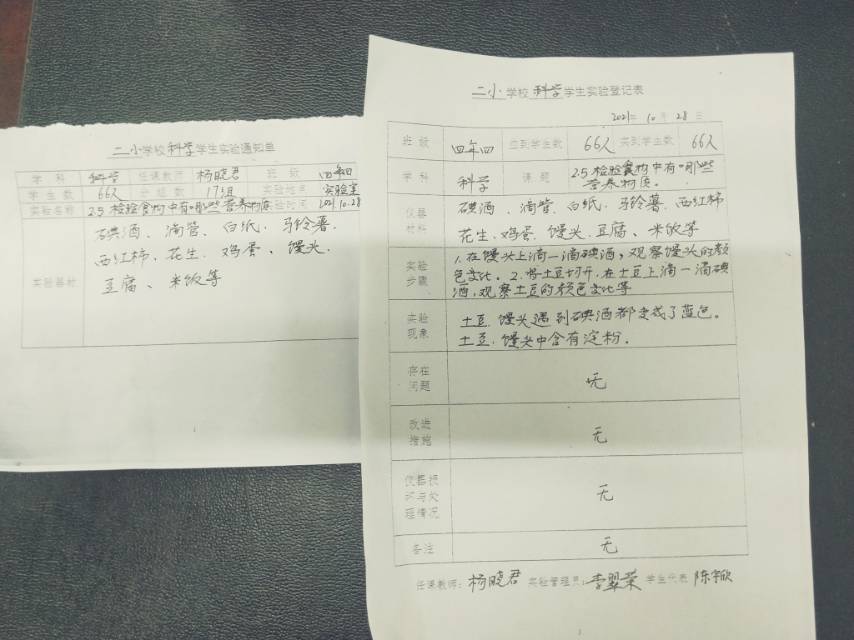 二小学校科学学生实验通知单
学科 科学 任课教师 杨晓君 班级 四年四
学生数 66人 分组数 17组 实验地点 实验室
实验名称 2.5检验食物中有哪些营养物质 实验时间 2021.10.28
实验器材
碘酒、滴管、白纸、马铃薯、
西红柿、花生、鸡蛋、馒头、
豆腐、米饭等
二小学校科学学生实验登记表
2021年10月28日
班级 四年四 应到学生数 66人 实到学生数 66人
学科 科学 课题 2.5检验食物中有哪些
营养物质。
仪器
材料
碘酒、滴管、白纸、马铃薯、西红柿
花生、鸡蛋、馒头、豆腐、米饭等
实验
步骤
1.在馒头上滴一滴碘酒,观察馒头的颜
色变化。2.将土豆切开,在土豆上滴一滴碘
酒,观察土豆的颜色变化等
实验
现象
土豆、馒头遇到碘酒都变成了蓝色。
土豆、馒头中含有淀粉。
存在
问题
无
改进
措施
无
仪器损
坏与处
理情况
无
备注 无
任课教师:杨晓君 实验管理员:李翠荣 学生代表 陈宇欣